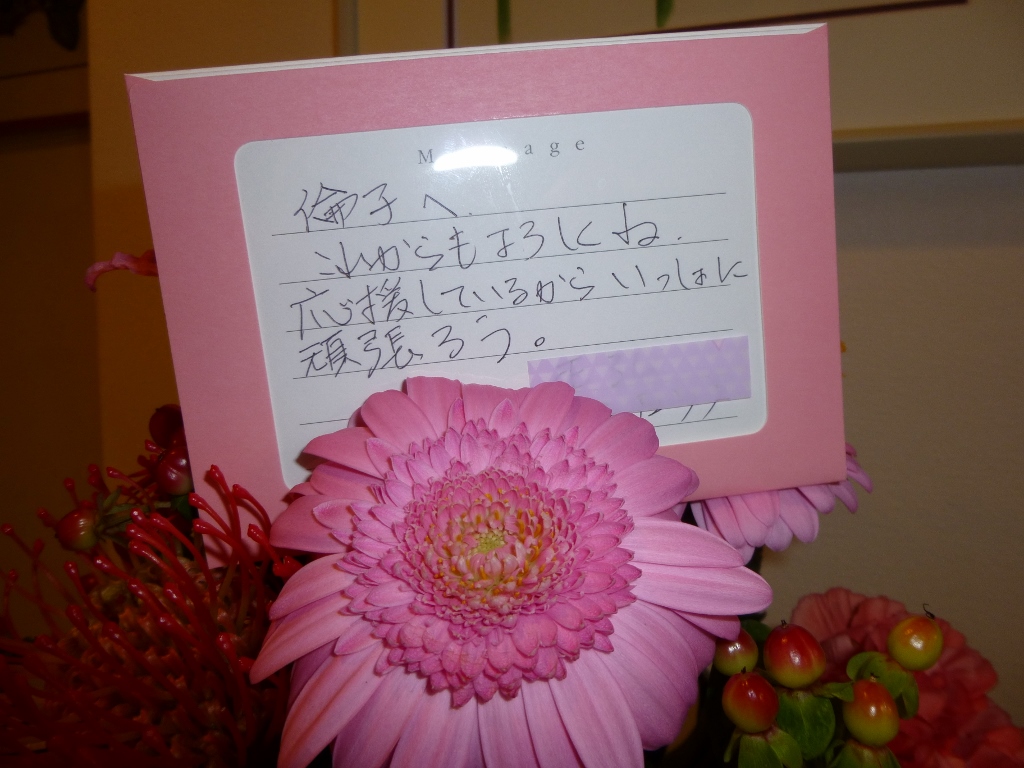 Message
倫子へ
これからもよろしくね.
応援しているからいっしょに
頑張ろう。